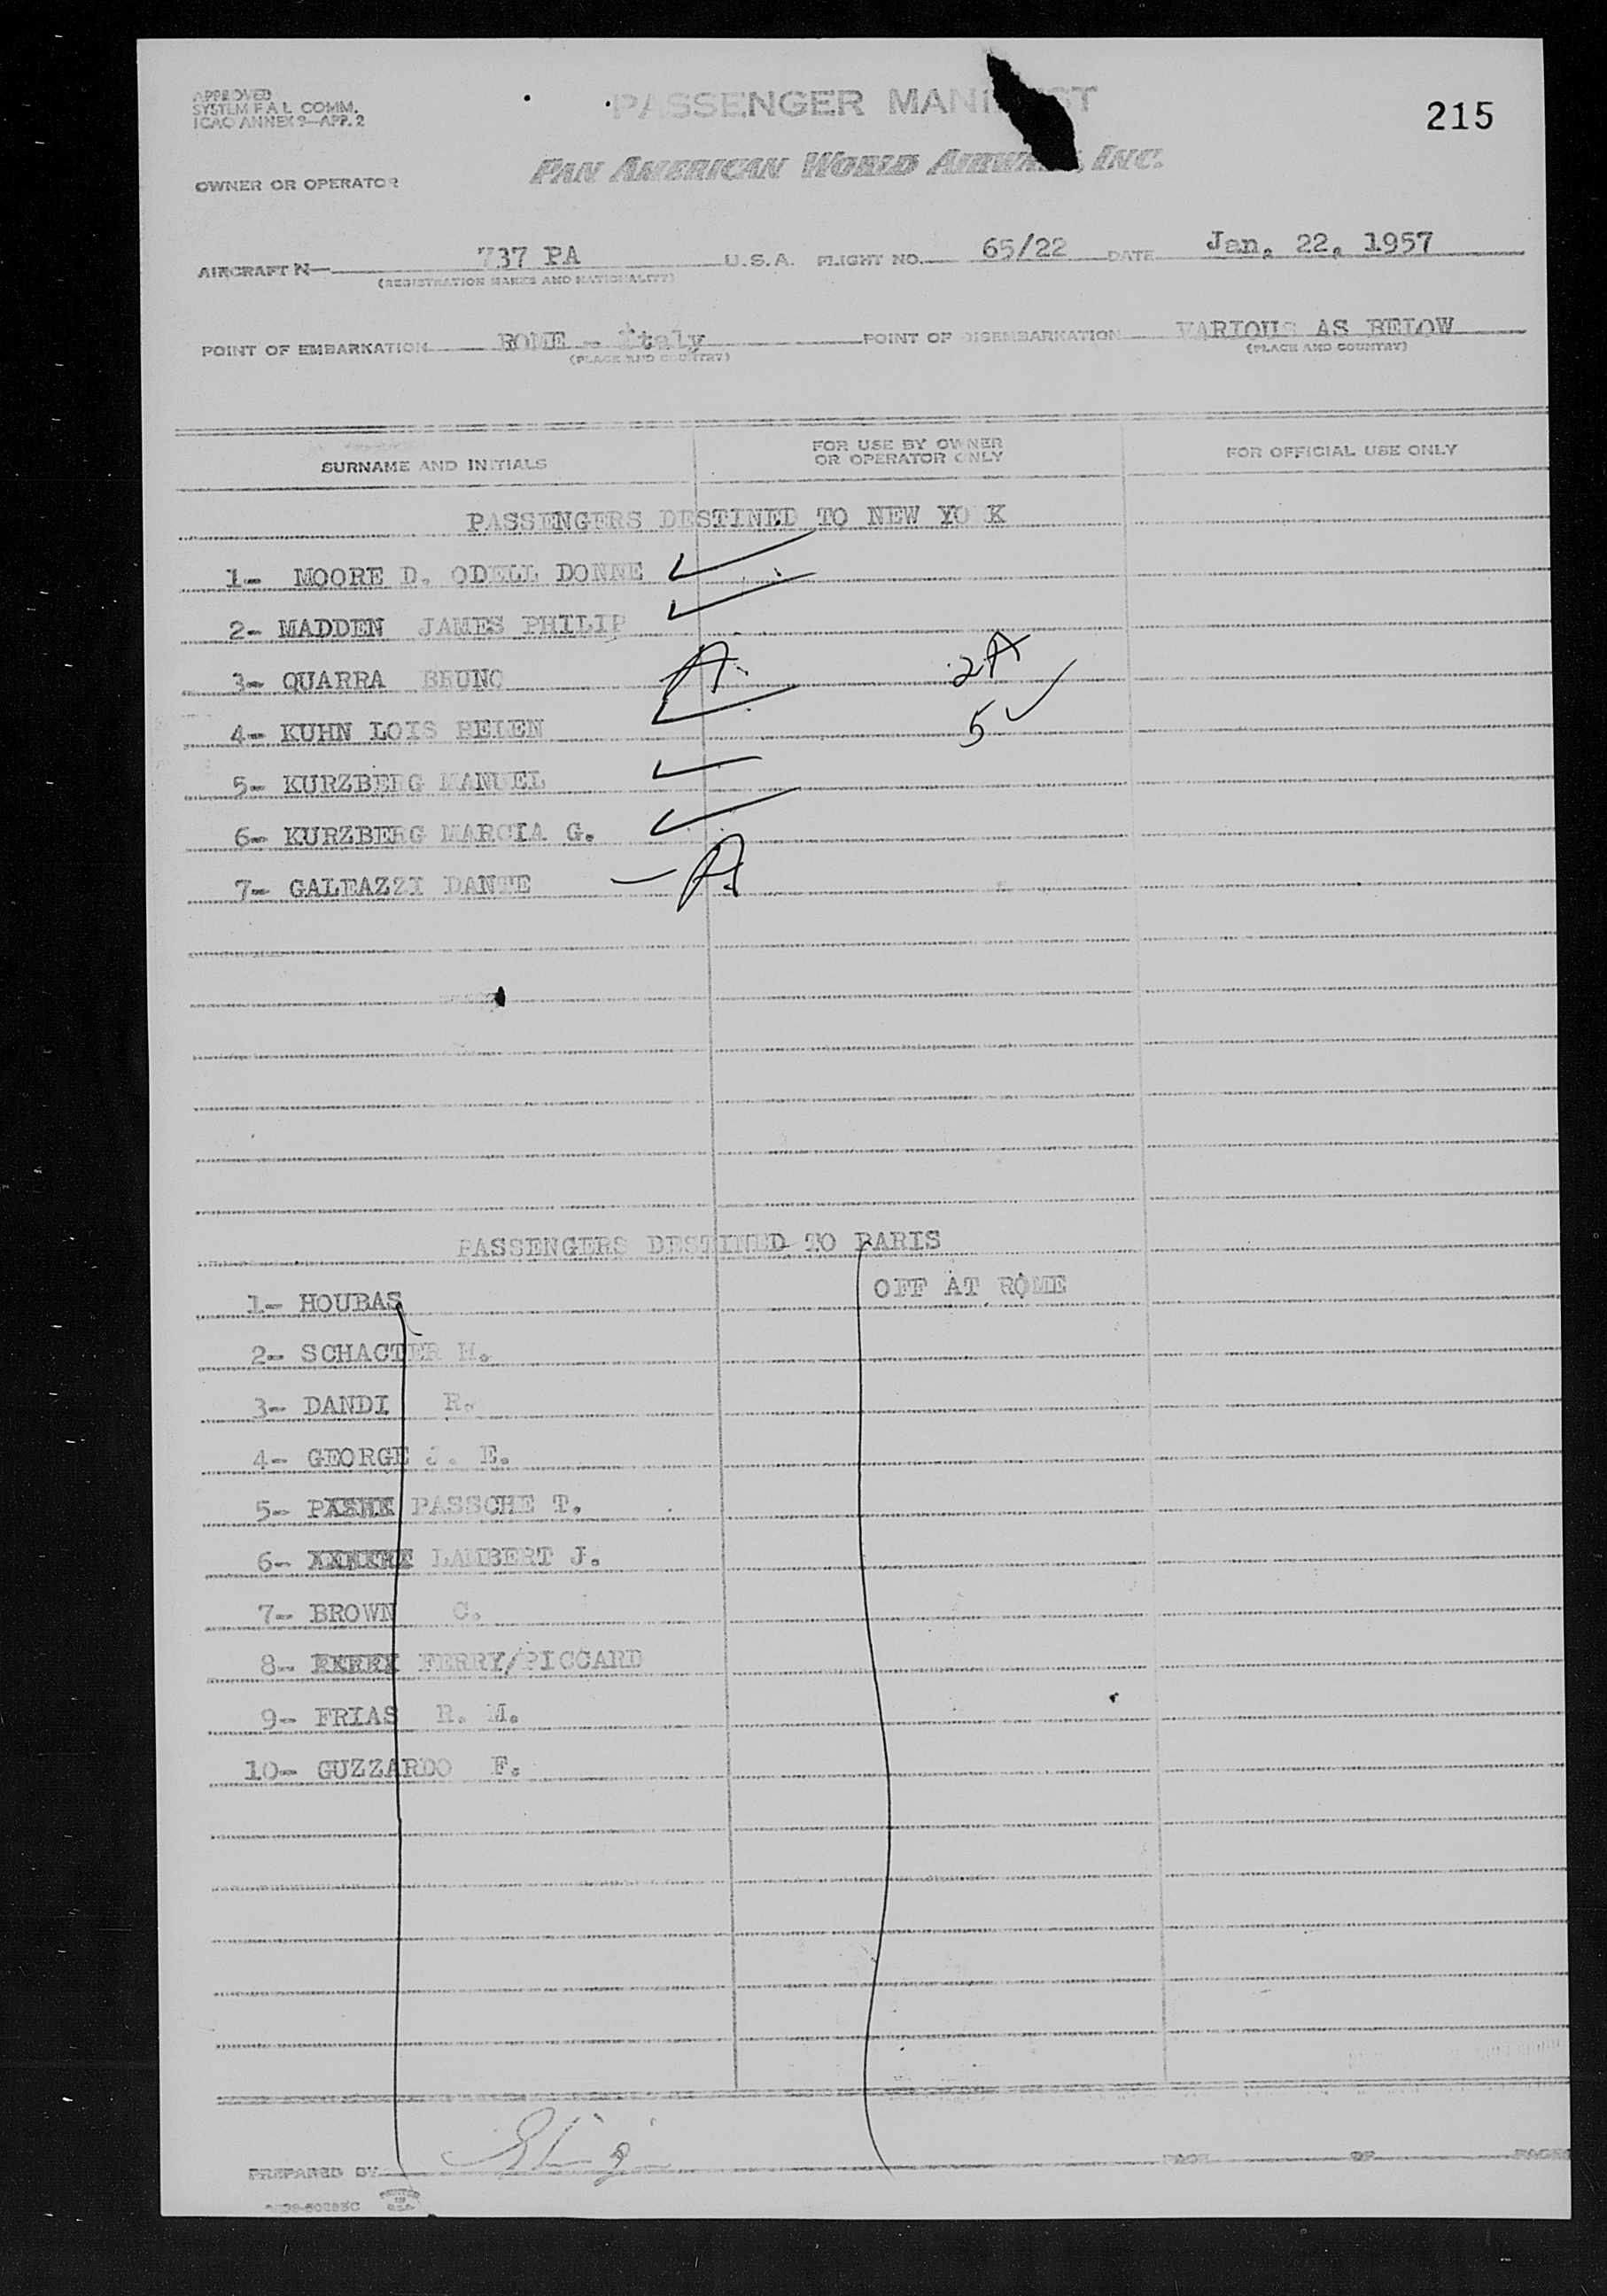 APPROVED
SYSTEM F.A.L. COMM.
ICAO ANNEX 9—APP. 2
PASSENGER MANIFEST
215
PAN AMERICAN WORLD AIRWAYS, INC.
OWNER OR OPERATOR
AIRCRAFT N— 737 PA U.S.A. FLIGHT NO. 65/22 DATE Jan. 22, 1957
(REGISTRATION MARKS AND NATIONALITY)
POINT OF EMBARKATION ROME - Italy POINT OF DISEMBARKATION VARIOUS AS BELOW
(PLACE AND COUNTRY) (PLACE AND COUNTRY)
SURNAME AND INITIALS FOR USE BY OWNER OR OPERATOR ONLY FOR OFFICIAL USE ONLY
PASSENGERS DESTINED TO NEW YO K
1- MOORE D. ODELL DONNE ✓
2- MADDEN JAMES PHILIP ✓
3- QUARRA BRUNO A 2A
4- KUHN LOIS HELEN ✓ 5 ✓
5- KURZBERG MANUEL ✓
6- KURZBERG MARCIA G. ✓
7- GALEAZZI DANTE — A
PASSENGERS DESTINED TO PARIS
OFF AT ROME
1- HOUBAS
2- SCHACTER H.
3- DANDI R.
4- GEORGE J. E.
5- PASSCHE T.
6- LAMBERT J.
7- BROWN C.
8- FERRY/PICCARD
9- FRIAS R. M.
10- GUZZARDO F.
PREPARED BY PAGE OF PAGES
PRINTED IN U.S.A.